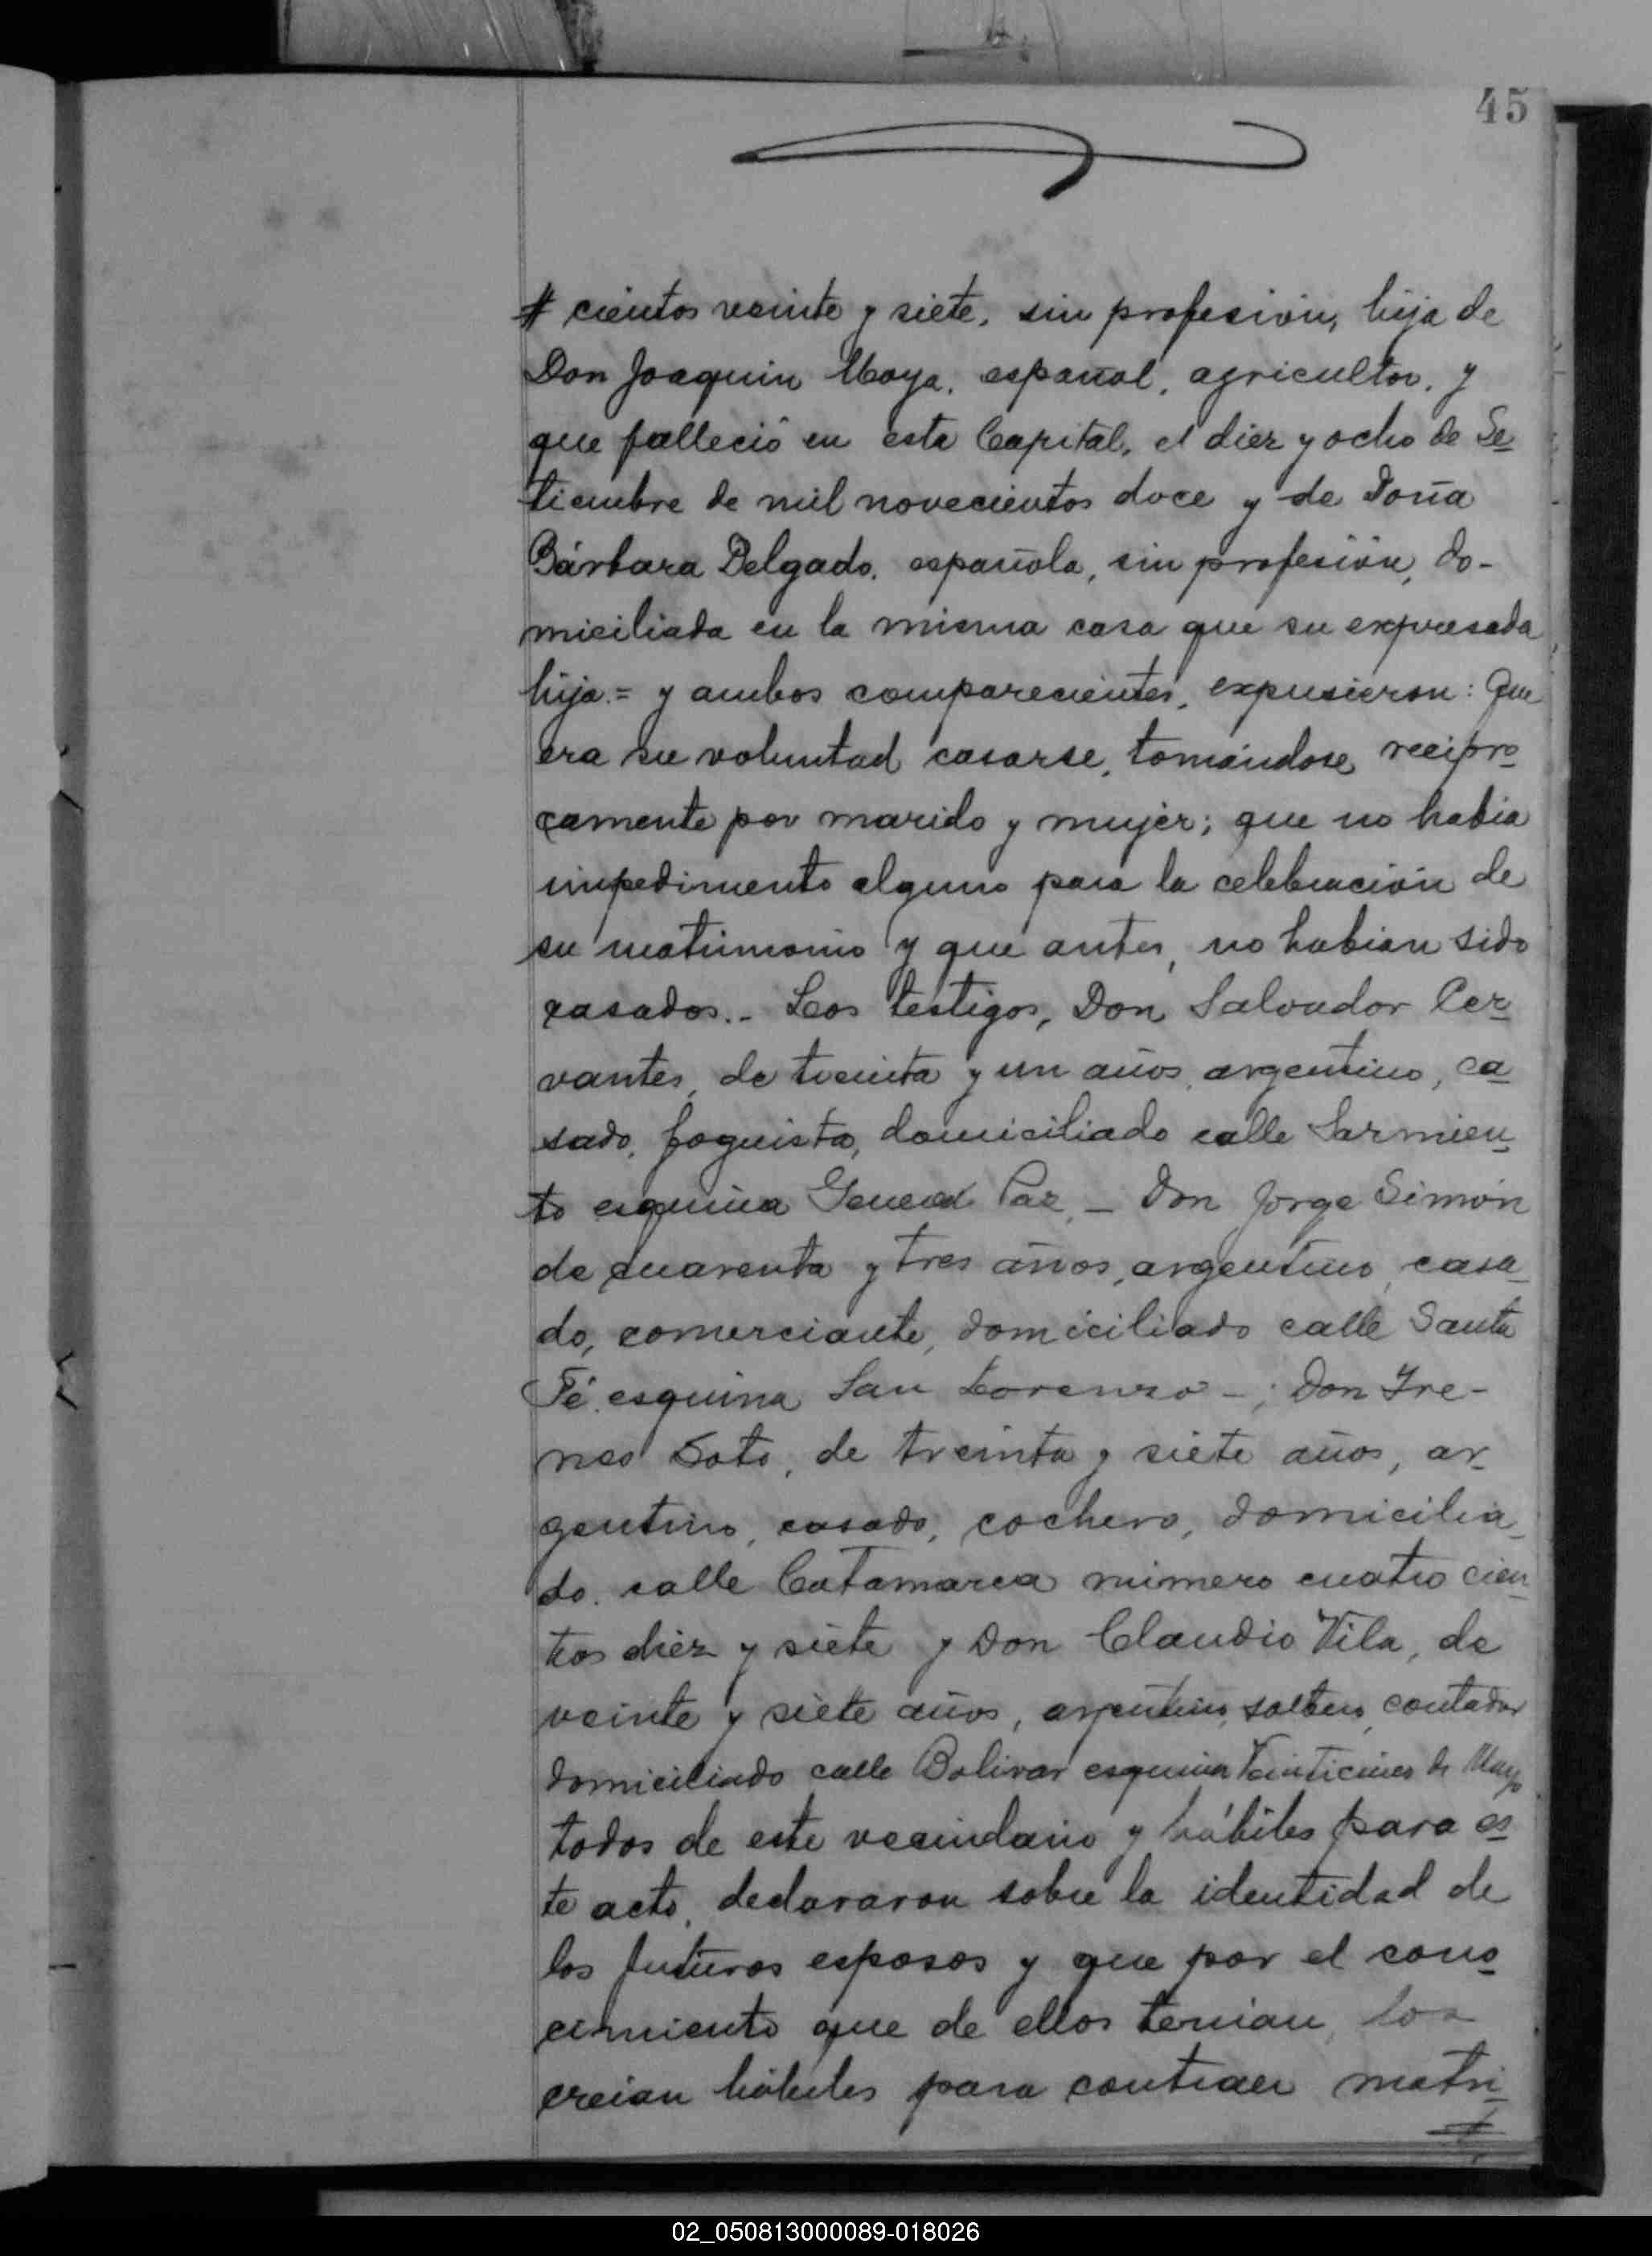 45
# cientos veinte y siete, sin profesión, hija de
Don Joaquin Moya, español, agricultor, y
que falleció en esta Capital, el diez y ocho de Se-
tiembre de mil novecientos doce y de Doña
Bárbara Delgado, española, sin profesión, do-
miciliada en la misma casa que su expresada
hija.= y ambos comparecientes, expusieron: Que
era su voluntad casarse, tomándose recípro-
camente por marido y mujer; que no habia
impedimento alguno para la celebración de
su matrimonio y que antes, no habian sido
casados.- Los testigos, Don Salvador Cer-
vantes, de treinta y un años, argentino, ca-
sado, foguista, domiciliado calle Sarmien-
to esquina General Paz,- Don Jorge Simón
de cuarenta y tres años, argentino, casa-
do, comerciante, domiciliado calle Santa
Fé esquina San Lorenzo -; Don Yre-
neo Soto, de treinta y siete años, ar-
gentino, casado, cochero, domicilia-
do calle Catamarca número cuatro cien-
tos diez y siete y Don Claudio Vila, de
veinte y siete años, argentino, soltero, contador
domiciliado calle Bolivar esquina Veinticinco de Mayo
todos de este vecindario y hábiles para es-
te acto, declararon sobre la identidad de
los futuros esposos y que por el cono-
cimiento que de ellos tenian, los
creian hábiles para contraer matri-
#
02_050813000089-018026